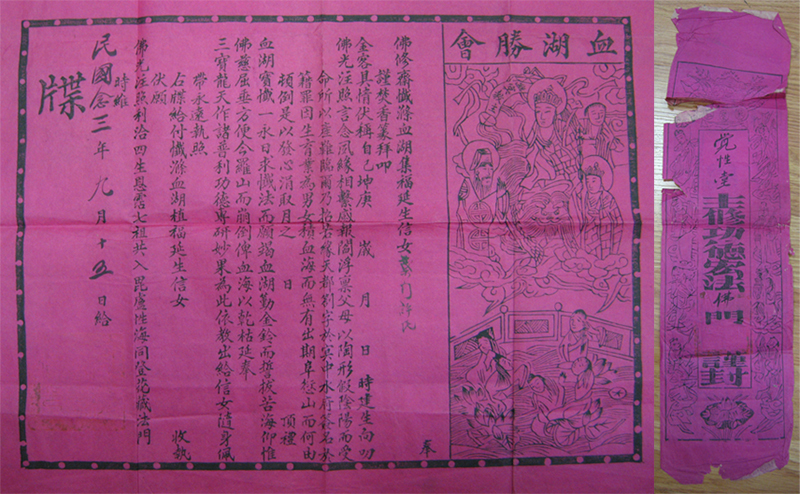 血湖勝會
奉
佛修齋懺滌血湖集福延生信女
謹焚香拜叩
金容具情伏稱自己坤庚 歲 月 日 時建生向叨
佛光注照言念夙緣相繫感報閻浮稟父母以陶形假陰陽而受
命所以罪臨爾乃招苦緣天都字於冥中水府簽名於
籍罪因生育業為男女積血海而無有出期岸愆山而何由
頓倒是以發心消取月之 日 頂禮
血湖寶懺一永日求懺法而願竭血湖勤金鈴而拔苦海仰惟
佛慈屈垂方便令羅山而崩倒俾血海以乾枯延奉
三寶龍天作諸普利功德專研妙果為此依教出給信女隨身佩
帶永遠執照
右牒給付懺滌血湖植福延生信女 收執
伏願
佛光注照利洽四生恩霑七祖共入毘盧性海同登花藏法門
時維
民國念三年九月十五日給
牒
覺性堂
主修功德宏法佛門 謹封